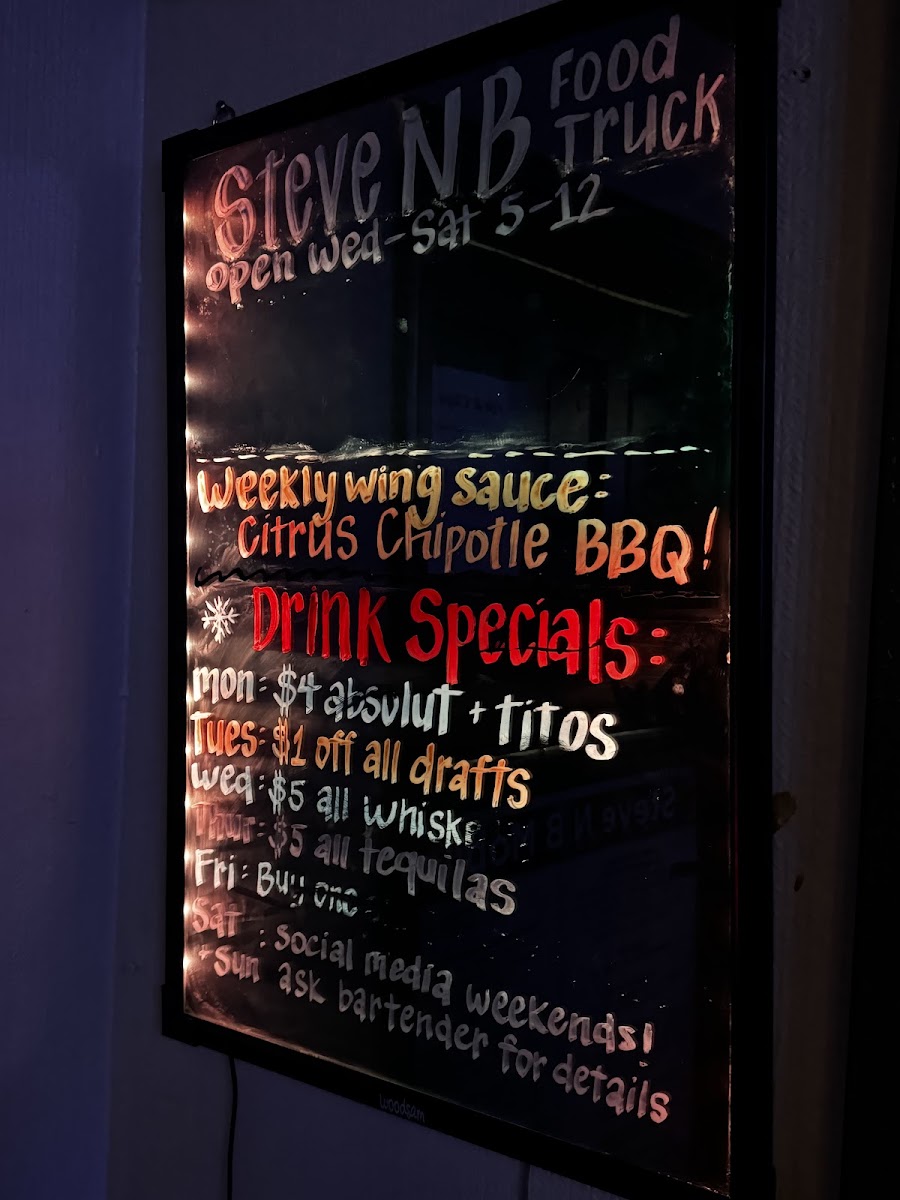 Steve NB Food Truck
open Wed-Sat 5-12
Weekly wing sauce:
Citrus Chipotle BBQ!
Drink Specials:
mon: $4 absolut + titos
Tues: $1 off all drafts
wed: $5 all whiske
Thur: $5 all tequilas
Fri: Buy one
Sat : social media weekends!
+Sun ask bartender for details
woodsam